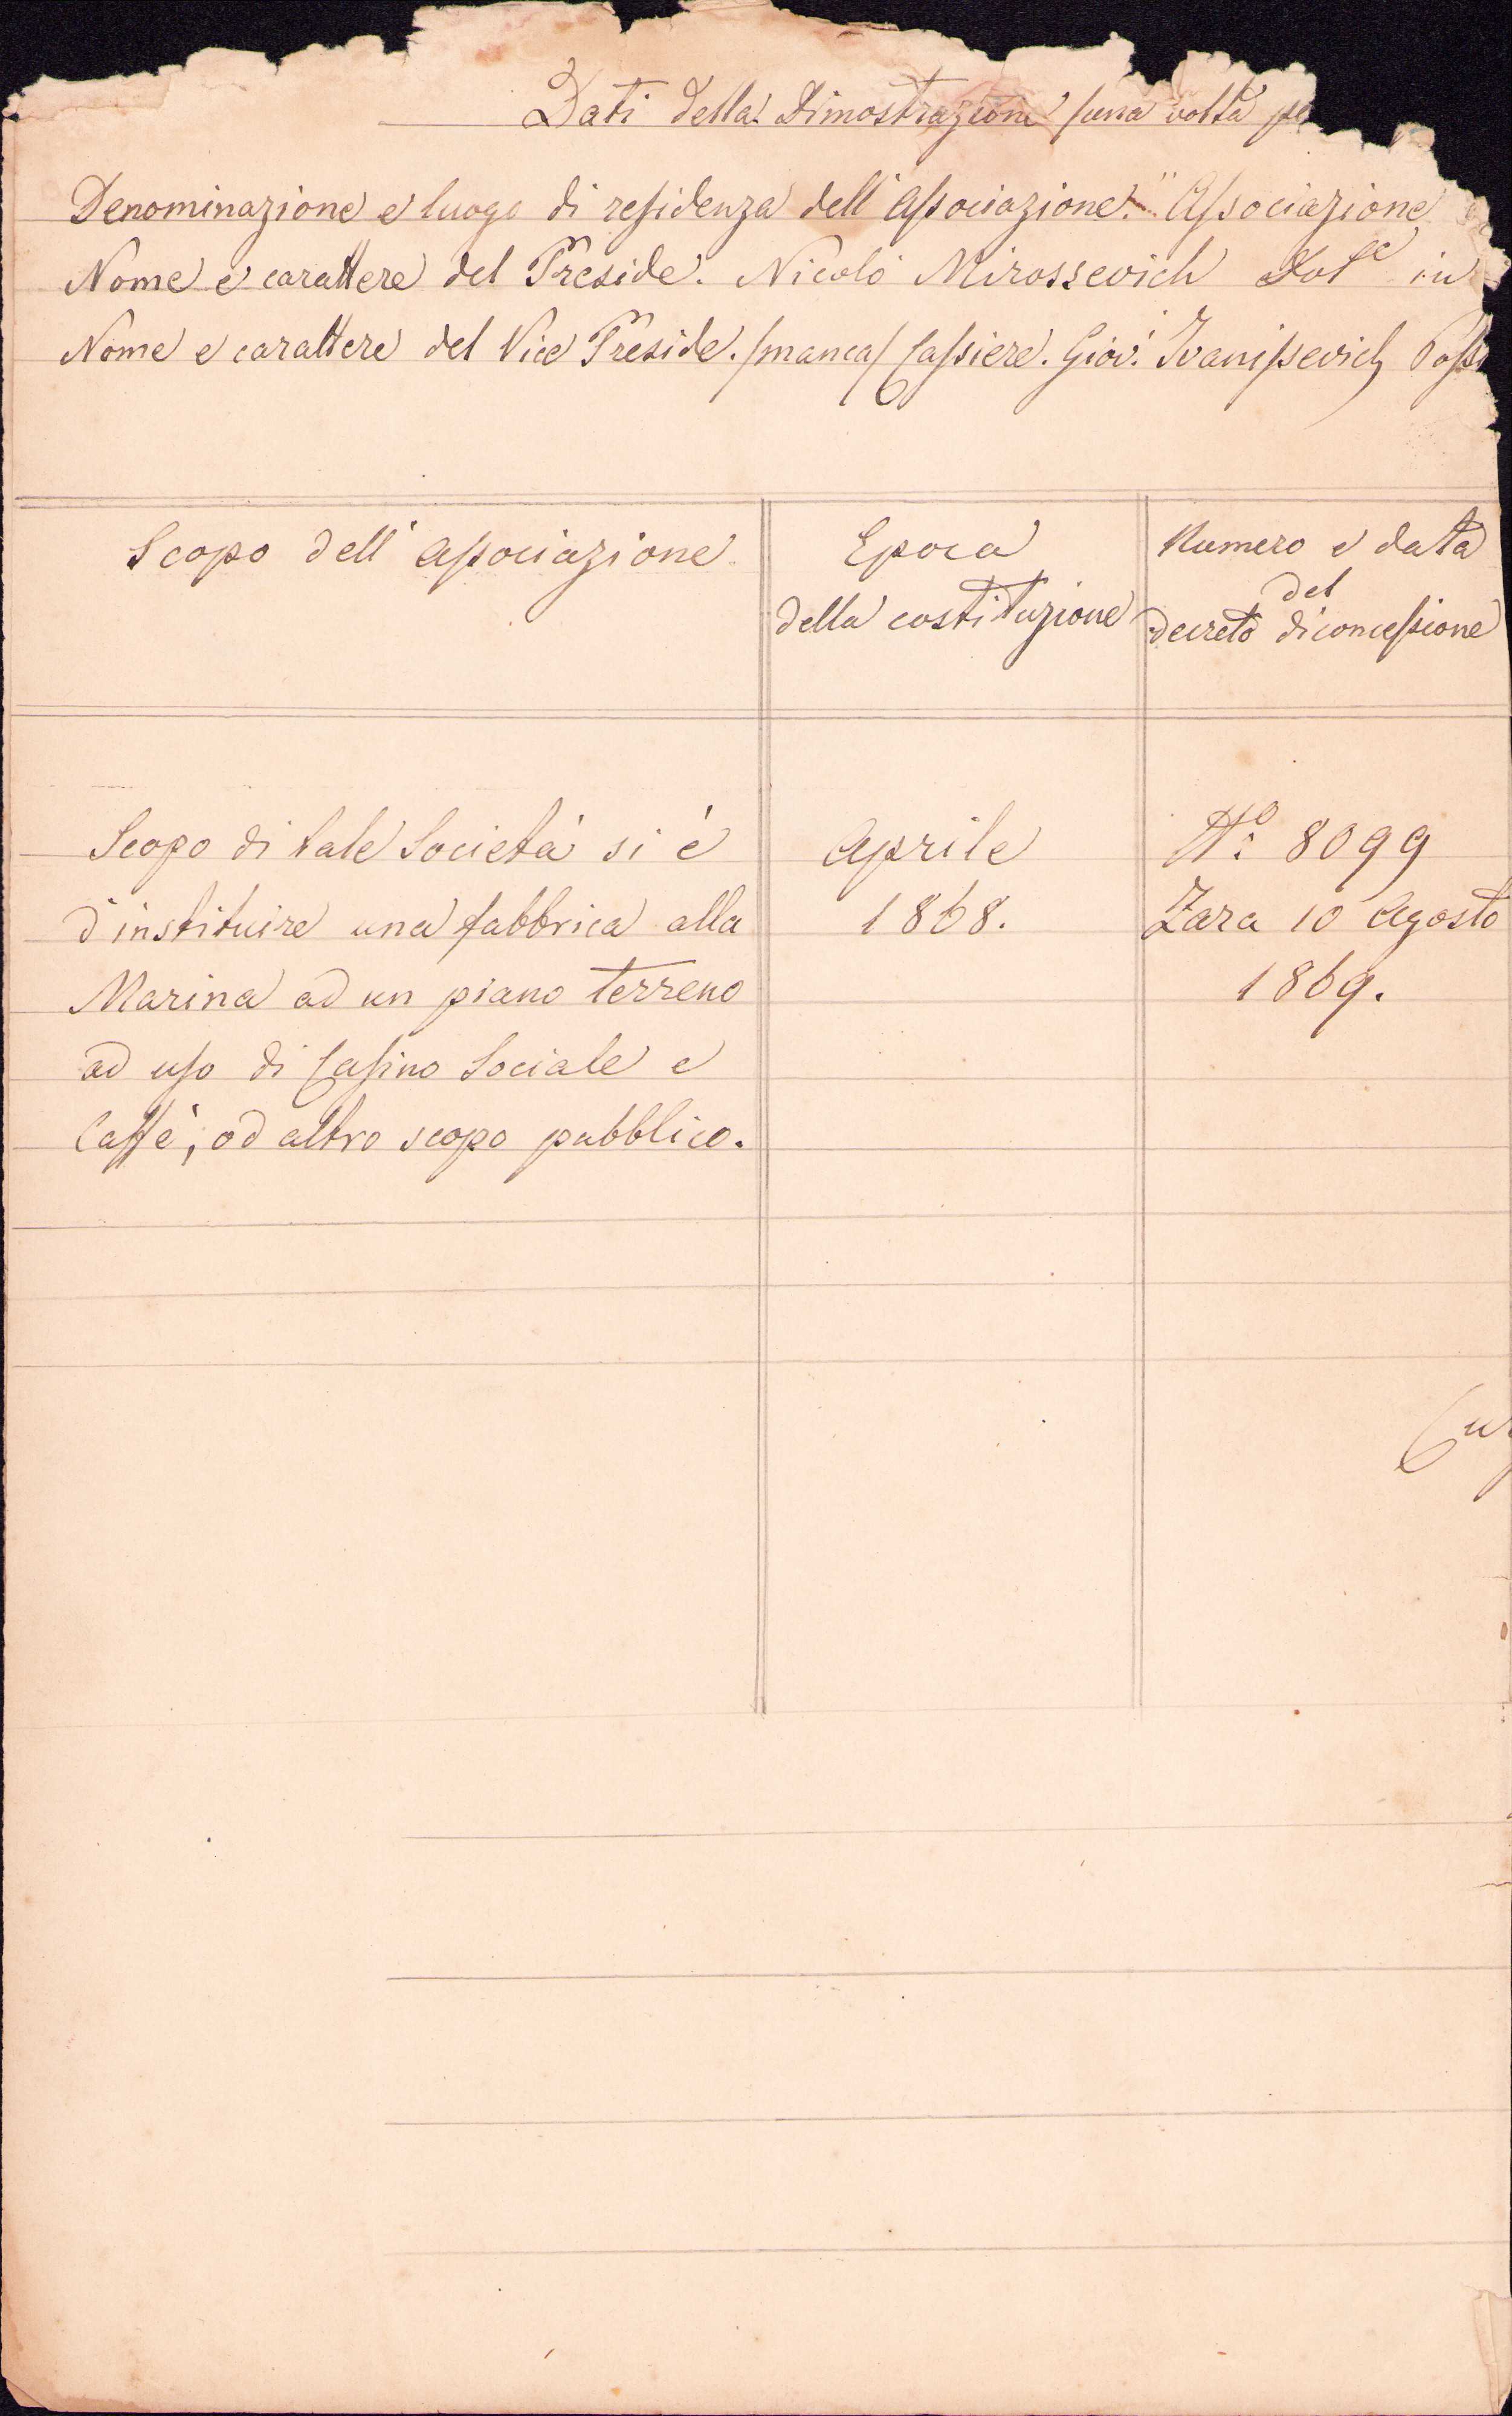 Dati della Dimostrazione /una volta pe
Denominazione e luogo di residenza dell'Associazione. "Associazione
Nome e carattere del Preside. Nicolò Mirossevich Dot.e in
Nome e carattere del Vice Preside. /manca/ Cassiere. Giov. Ivanissevich Poss
Scopo dell'Associazione
Epoca
della costituzione
Numero e data
del
decreto di concessione
Scopo di tale Società si è
d'instituire una fabbrica alla
Marina ad un piano terreno
ad uso di Casino Sociale e
Caffè, od altro scopo pubblico.
Aprile
1868.
N.o 8099
Zara 10 Agosto
1869.
Cur